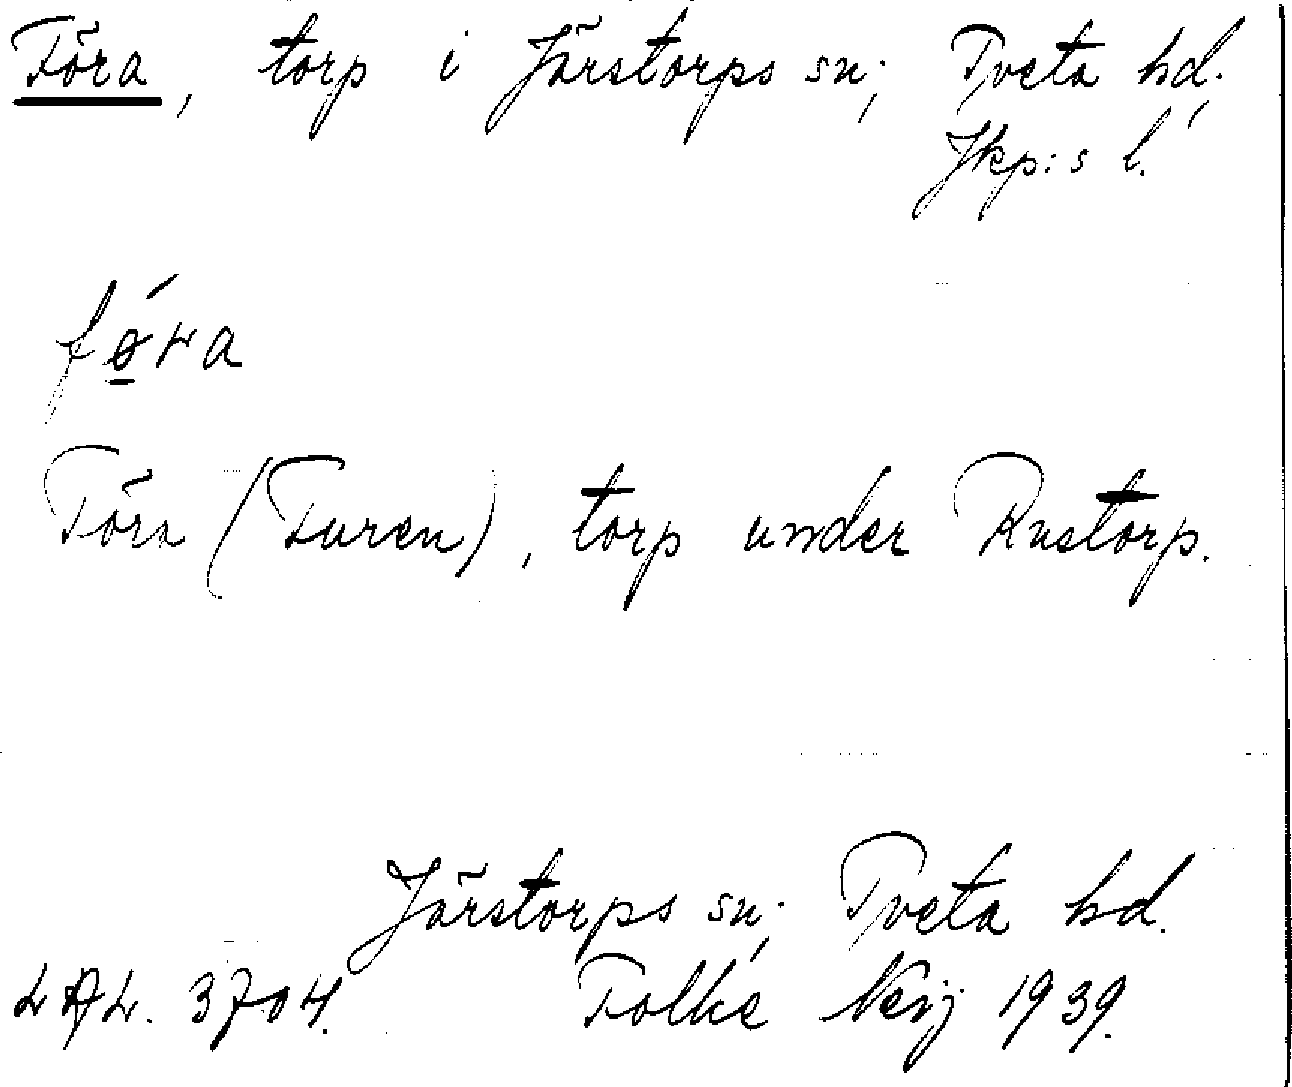 Föra, torp i Järstorps sn; Tveta hd.,
Jkp:s l.
fǿ̱ra
Föra (Furen), torp under Rustorp.
Järstorps sn; Tveta hd.
LAL. 3704. Folke Neij 1939.